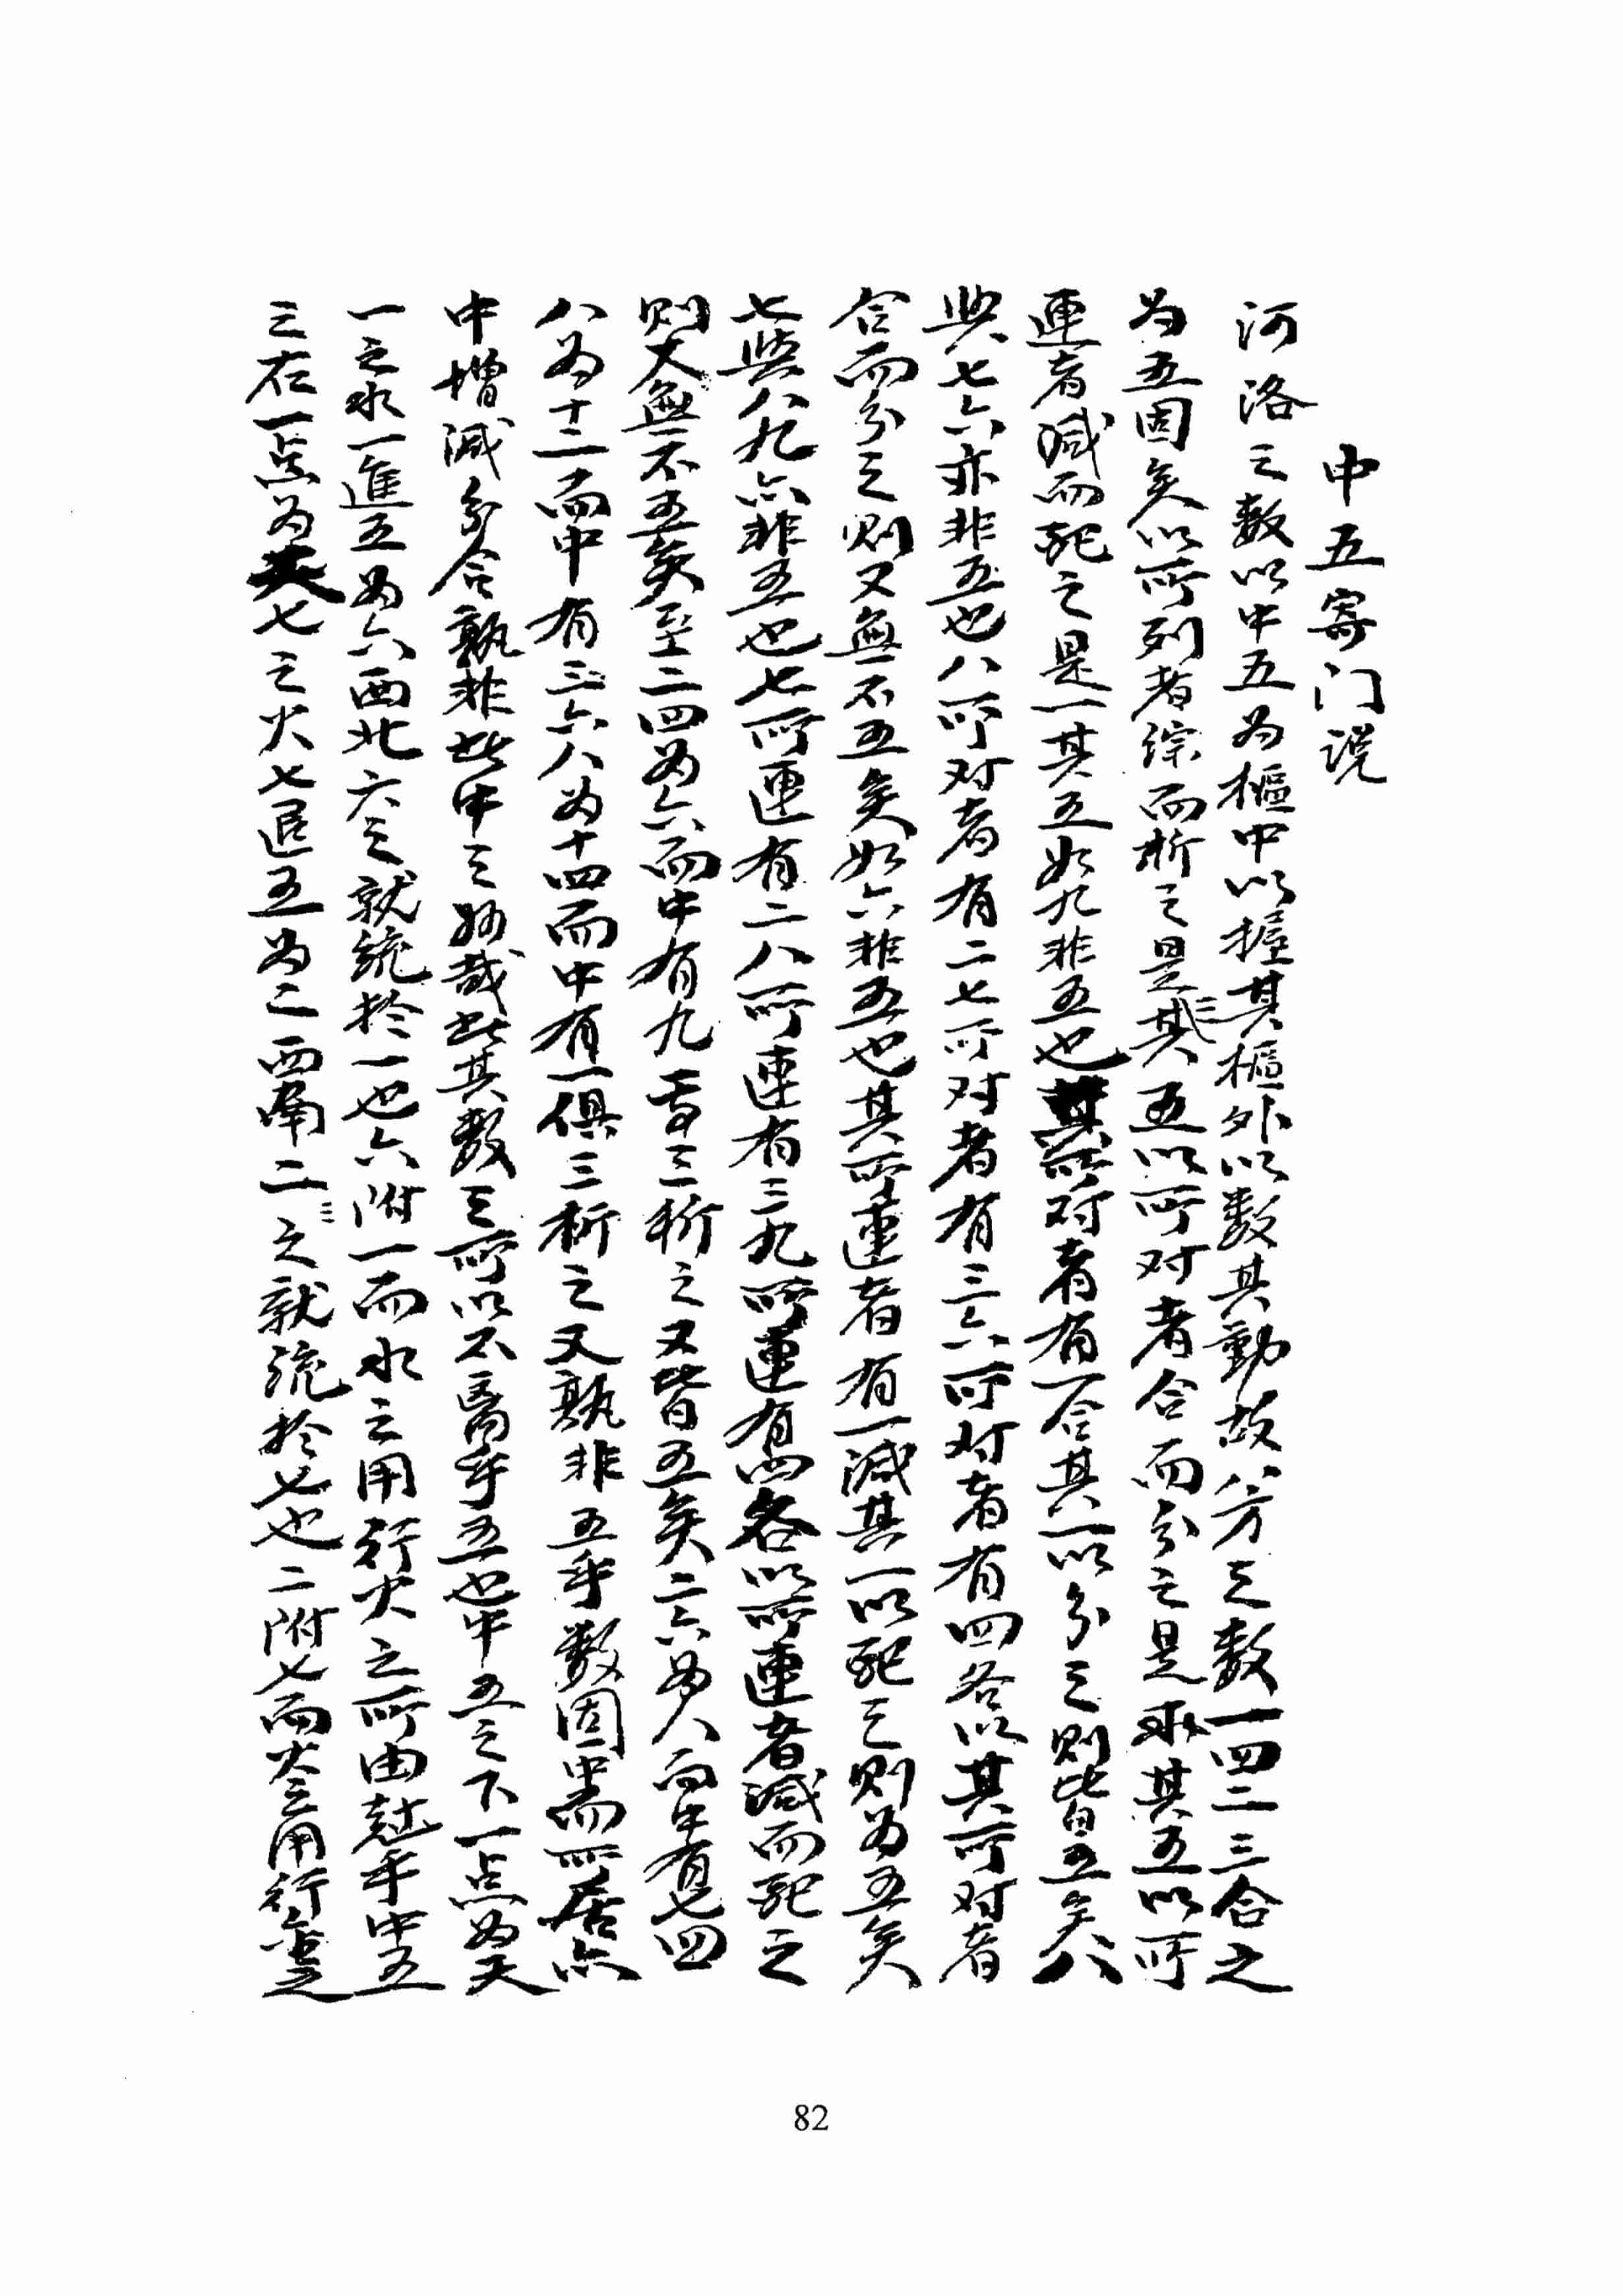 中五寄门说
河洛之数以中五为樞中以握其樞外以数其動故八方之数一四二三合之
为五固矣以所列者综而析之是其五以所对者合而分之是亦其五以所
連者減而配之是一其五如九非五也其所对者有一合其一以分之則皆五矣八
與七六亦非五也八所对者有二七所对者有三六所对者有四各以其所对者
合而分之則又無不五矣如六非五也其所連者有一減其一以配之則为五矣
七與八九亦非五也七所連有二八所連有三九所連有四各以所連者減而配之
則又無不五矣至二四为六而中有九三析之又皆五矣二六为八而中有七四
八为十二而中有三六八为十四而中有一俱三析之又孰非五乎数固中而所居亦
中增減分合孰非此中之妙哉此其数之所以不离乎五也中五之下一点为天
一之水一進五为六西北六之就統於一也六附一而水之用行火之所由起乎中五
之右一点为天七之火七退五为二西南二之就統於七也二附七而火之用行金之
82